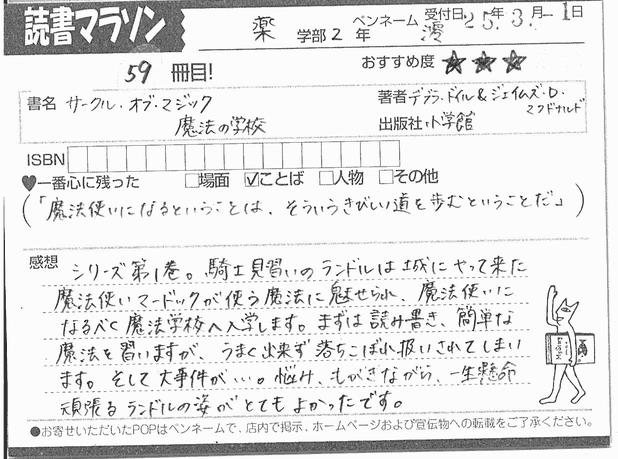 読書マラソン
薬 学部 2 年 ペンネーム 澪 受付日 25年 3.月 1日
59 冊目!
おすすめ度 ★★★
書名 サークル・オブ・マジック
魔法の学校
著者 デブラ・ドイル & ジェイムズ・D・
マクドナルド
出版社 小学館
ISBN
♥一番心に残った □場面 ☑ことば □人物 □その他
(「魔法使いになるということは、そういうきびしい道を歩むということだ」)
感想 シリーズ第1巻。騎士見習いのランドルは城にやって来た
魔法使いマードックが使う魔法に魅せられ、魔法使いに
なるべく魔法学校へ入学します。まずは読み書き、簡単な
魔法を習いますが、うまく出来ず落ちこぼれ扱いされてしまい
ます。そして大事件が…。悩み、もがきながら、一生懸命
頑張るランドルの姿がとてもよかったです。
●お寄せいただいたPOPはペンネームで、店内で掲示、ホームページおよび宣伝物への転載をご了承ください。